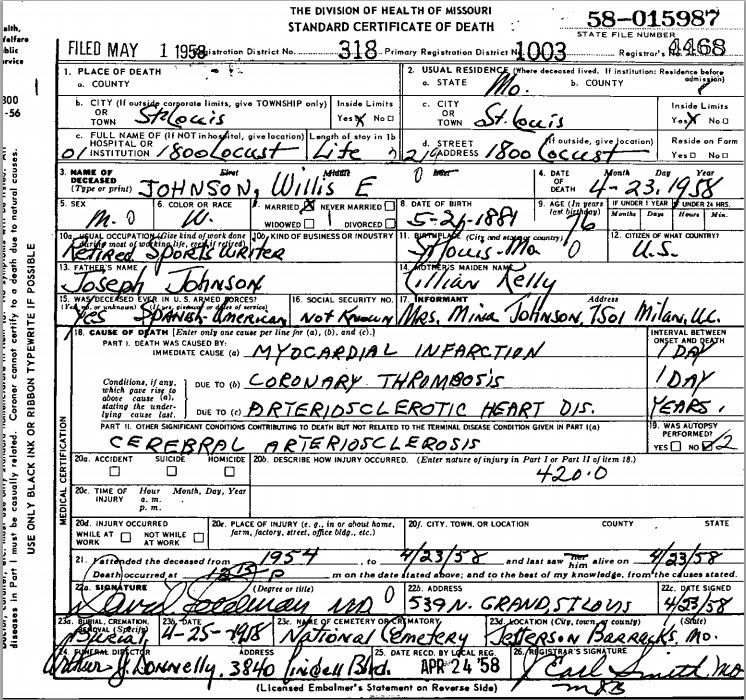 THE DIVISION OF HEALTH OF MISSOURI
STANDARD CERTIFICATE OF DEATH
58-015987
STATE FILE NUMBER
FILED MAY 1 1958 Registration District No. 318 Primary Registration District No. 1003 Registrar's No. 4468
1. PLACE OF DEATH
a. COUNTY
2. USUAL RESIDENCE (Where deceased lived. If institution: Residence before admission)
a. STATE Mo. b. COUNTY
b. CITY (If outside corporate limits, give TOWNSHIP only) OR TOWN St Louis
Inside Limits Yes X No
c. CITY OR TOWN St. Louis
Inside Limits Yes X No
c. FULL NAME OF (If NOT in hospital, give location) HOSPITAL OR INSTITUTION 1800 Locust
Length of stay in 1b Life
d. STREET ADDRESS (If outside, give location) 1800 Locust
Reside on Farm Yes No
3. NAME OF DECEASED (Type or print) First Middle Last
JOHNSON, Willis E
4. DATE OF DEATH Month Day Year
4-23, 1958
5. SEX M.
6. COLOR OR RACE W.
7. MARRIED X NEVER MARRIED WIDOWED DIVORCED
8. DATE OF BIRTH
9. AGE (In years last birthday) 76
IF UNDER 1 YEAR Months Days
IF UNDER 24 HRS. Hours Min.
10a. USUAL OCCUPATION (Give kind of work done during most of working life, even if retired) Retired Sports Writer
10b. KIND OF BUSINESS OR INDUSTRY
11. BIRTHPLACE (City and state or country) St Louis-Mo
12. CITIZEN OF WHAT COUNTRY? U.S.
13. FATHER'S NAME Joseph Johnson
14. MOTHER'S MAIDEN NAME Lillian Kelly
15. WAS DECEASED EVER IN U.S. ARMED FORCES? (Yes, no, or unknown) (If yes, give war or dates of service) Yes Spanish-American
16. SOCIAL SECURITY NO. Not Known
17. INFORMANT Address
Mrs. Mina Johnson, 7501 Milan, U.C.
18. CAUSE OF DEATH [Enter only one cause per line for (a), (b), and (c).]
INTERVAL BETWEEN ONSET AND DEATH
PART I. DEATH WAS CAUSED BY:
IMMEDIATE CAUSE (a) MYOCARDIAL INFARCTION 1 DAY
Conditions, if any, which gave rise to above cause (a), stating the underlying cause last.
DUE TO (b) CORONARY THROMBOSIS 1 DAY
DUE TO (c) ARTERIOSCLEROTIC HEART DIS. YEARS.
PART II. OTHER SIGNIFICANT CONDITIONS CONTRIBUTING TO DEATH BUT NOT RELATED TO THE TERMINAL DISEASE CONDITION GIVEN IN PART I(a)
CEREBRAL ARTERIOSCLEROSIS
19. WAS AUTOPSY PERFORMED? YES NO 2
20a. ACCIDENT SUICIDE HOMICIDE
20b. DESCRIBE HOW INJURY OCCURRED. (Enter nature of injury in Part I or Part II of item 18.)
420.0
20c. TIME OF INJURY Hour Month, Day, Year
a. m.
p. m.
20d. INJURY OCCURRED
WHILE AT WORK NOT WHILE AT WORK
20e. PLACE OF INJURY (e. g., in or about home, farm, factory, street, office bldg., etc.)
20f. CITY, TOWN, OR LOCATION COUNTY STATE
21. I attended the deceased from 1954, to 4/23/58 and last saw her him alive on 4/23/58
Death occurred at m on the date stated above; and to the best of my knowledge, from the causes stated.
22a. SIGNATURE (Degree or title) M.D.
22b. ADDRESS 539 N. GRAND, ST LOUIS
22c. DATE SIGNED 4/23/58
23a. BURIAL, CREMATION, REMOVAL (Specify) Burial
23b. DATE
23c. NAME OF CEMETERY OR CREMATORY National Cemetery
23d. LOCATION (City, town, or county) (State) Jefferson Barracks, Mo.
24. FUNERAL DIRECTOR ADDRESS
Arthur J. Donnelly, 3840 Lindell Blvd.
25. DATE RECD. BY LOCAL REG. APR 24 '58
26. REGISTRAR'S SIGNATURE
J. Earl Smith, MD
(Licensed Embalmer's Statement on Reverse Side)
MEDICAL CERTIFICATION
USE ONLY BLACK INK OR RIBBON TYPEWRITE IF POSSIBLE
diseases in Part I must be casually related. Coroner cannot certify to a death due to natural causes.